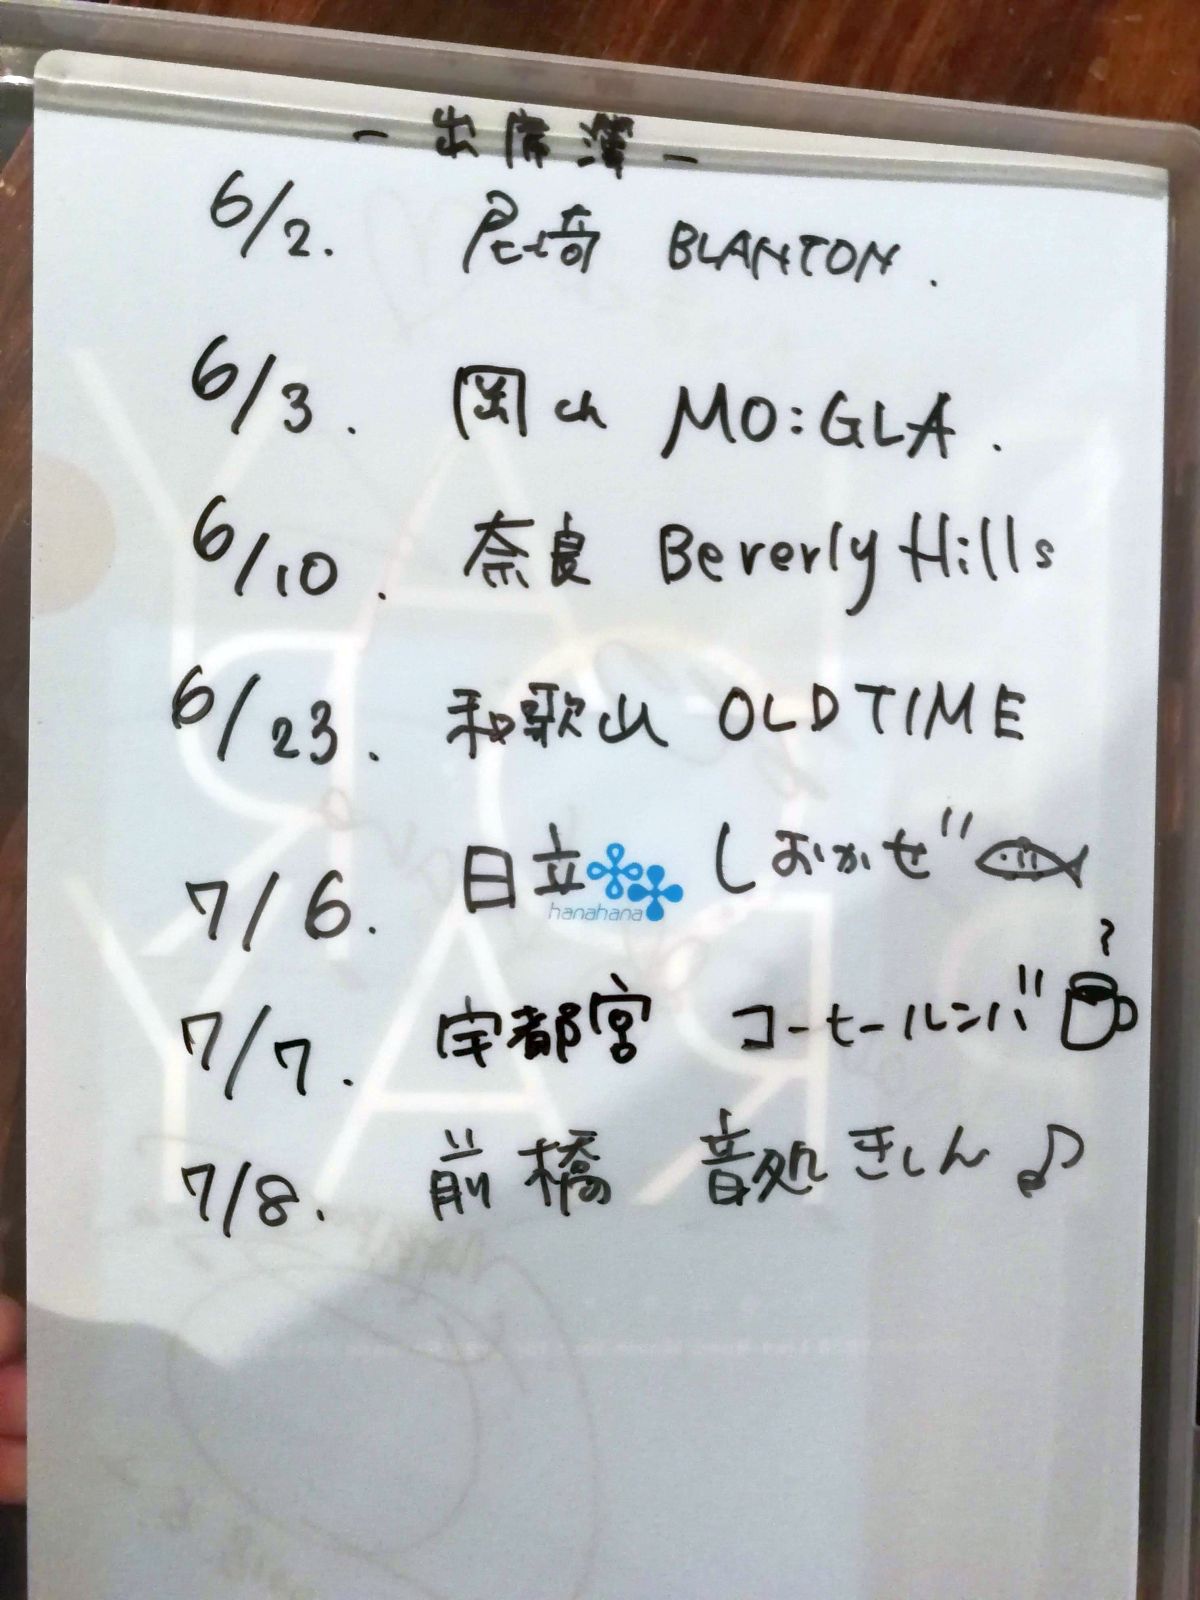 - 出席簿 -
6/2. 尼崎 BLANTON.
6/3. 岡山 MO:GLA.
6/10. 奈良 Beverly Hills
6/23. 和歌山 OLD TIME
7/6. 日立 しおかぜ
hanahana
7/7. 宇都宮 コーヒールンバ
7/8. 前橋 音処 きしん♪